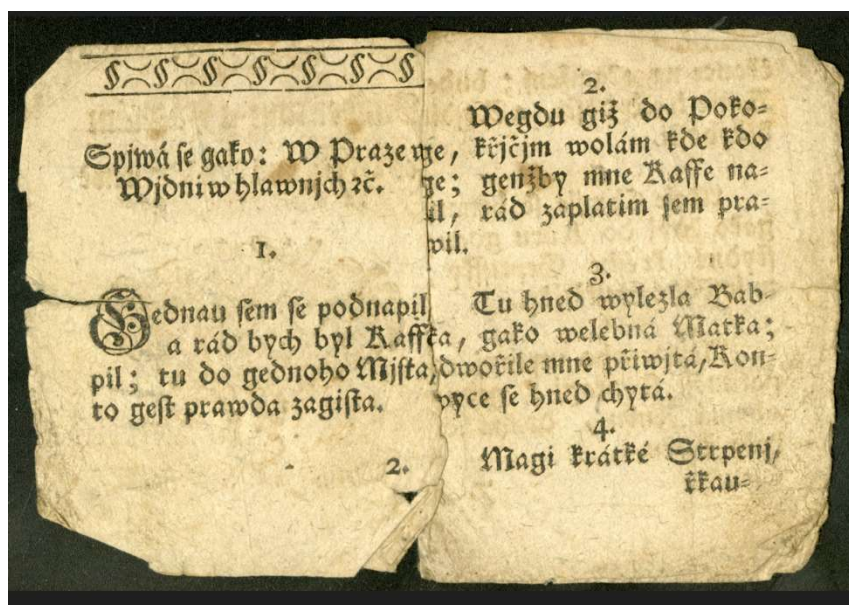 Spjwá ſe gako: W Praze we
Wjdni w hlawnjch ꝛč.
1.
Gednau ſem ſe podnapil
a rád bych byl Kaff
pil; tu do gednoho Mjſta,
to geſt prawda zagiſta.
2.
2.
Wegdu giž do Poko=
ge, křjčjm wolám kde kdo
ge; genžby mne Kaffe na=
il, rád zaplatim ſem pra=
wil.
3.
Tu hned wylezla Bab=
ka, gako welebná Matka;
dwořile mne přiwjtá, Kon=
wyce ſe hned chytá.
4.
Magi krátké Strpenj,
řkau=